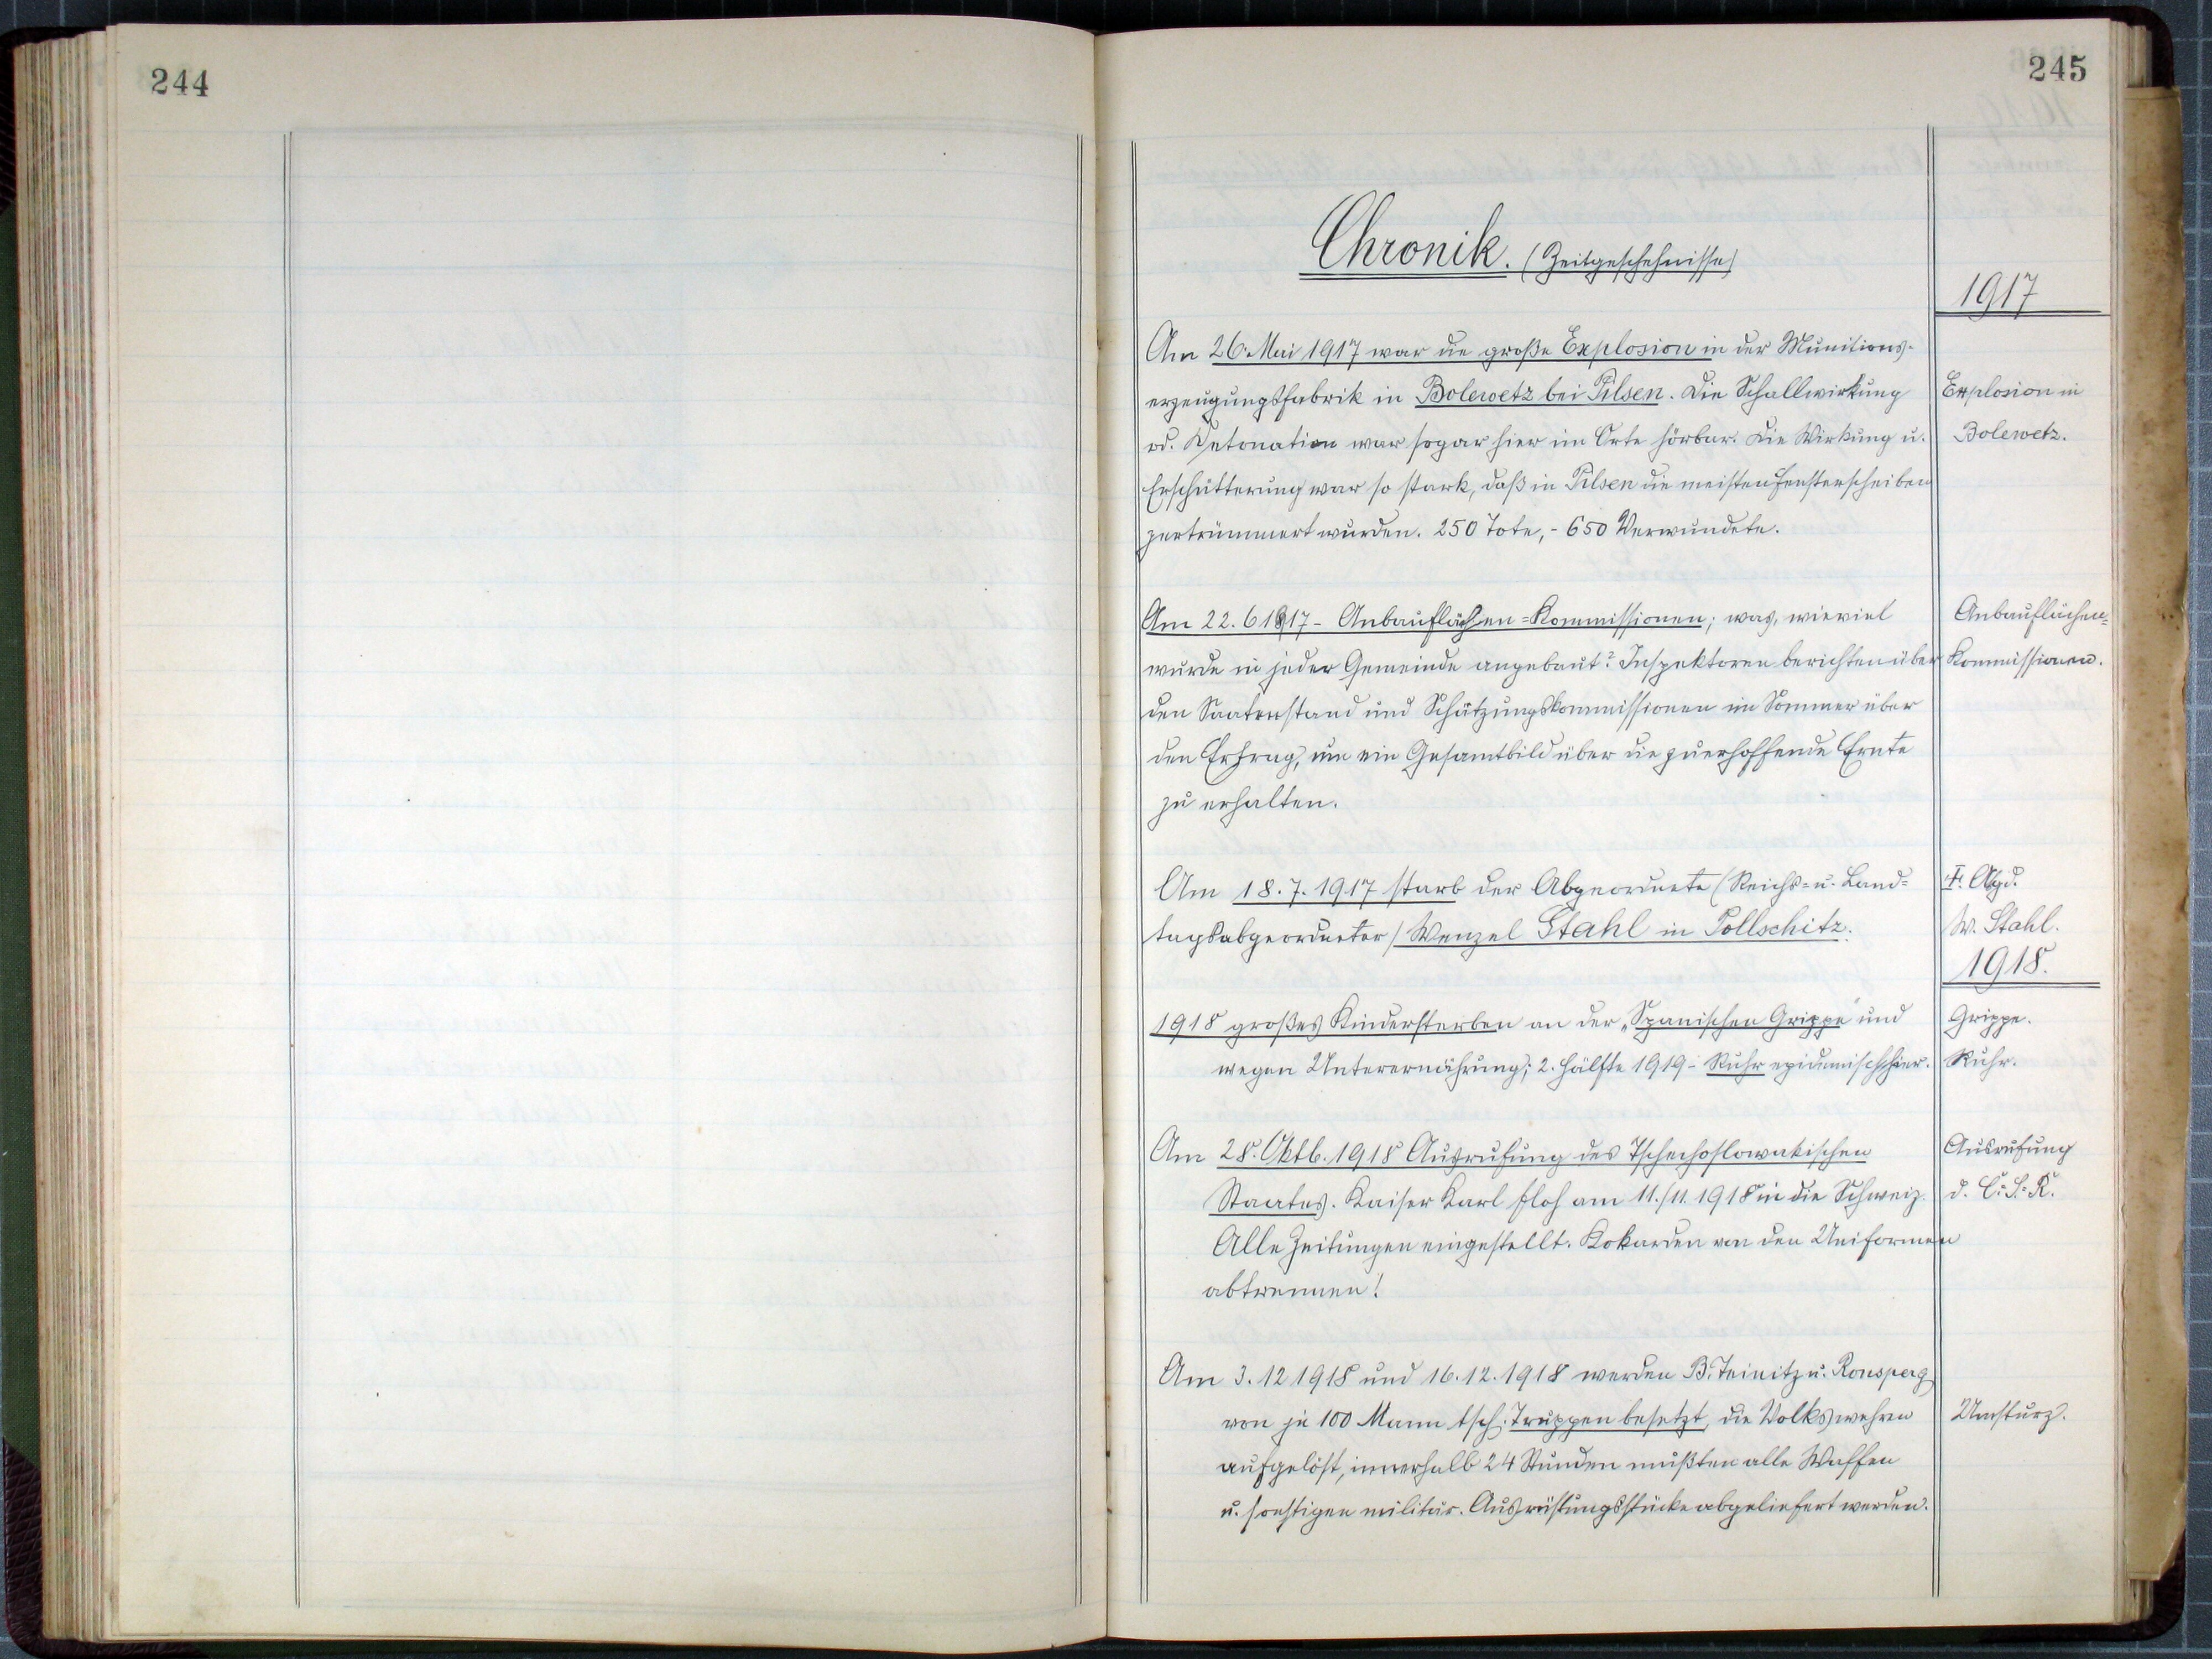 244
245
Chronik. (Zeitgeschehnisse)
1917
Am 26. Mai 1917 war die große Explosion in der Munitions-
erzeugungsfabrik in Bolewetz bei Pilsen. Die Schallwirkung
od. Detonation war sogar hier im Orte hörbar. Die Wirkung u.
Erschütterung war so stark, daß in Pilsen die meisten Fensterscheiben
zertrümmert wurden. 250 Tote, - 650 Verwundete.
Explosion in
Bolewetz.
Am 22. 6 1917 - Anbauflächen=Kommissionen; was, wieviel
wurde in jeder Gemeinde angebaut? Inspektoren berichten über
den Saatenstand und Schätzungskommissionen im Sommer über
den Ertrag, um ein Gesamtbild über die zuerhoffende Ernte
zu erhalten.
Anbauflächen=
Kommissionen.
Am 18. 7. 1917 starb der Abgeordnete (Reichs= u. Land=
tagsabgeordneter) Wenzel Stahl in Pollschitz.
†. Abgd.
W. Stahl.
1918.
1918 großes Kindersterben an der „Spanischen Grippe" und
wegen Unterernährung; 2. Hälfte 1919 - Ruhr epidemisch hier.
Grippe.
Ruhr.
Am 28. Oktb. 1918 Ausrufung des Tschechoslowakischen
Staates. Kaiser Karl floh am 11./11. 1918 in die Schweiz.
Alle Zeitungen eingestellt. Kokarden von den Uniformen
abtrennen!
Ausrufung
d. Č.-S.-R.
Am 3. 12 1918 und 16. 12. 1918 werden B. Teinitz u. Ronsperg
von je 100 Mann tsch. Truppen besetzt, die Volkswehren
aufgelöst, innerhalb 24 Stunden mußten alle Waffen
u. sonstigen militär. Ausrüstungsstücke abgeliefert werden.
Umsturz.